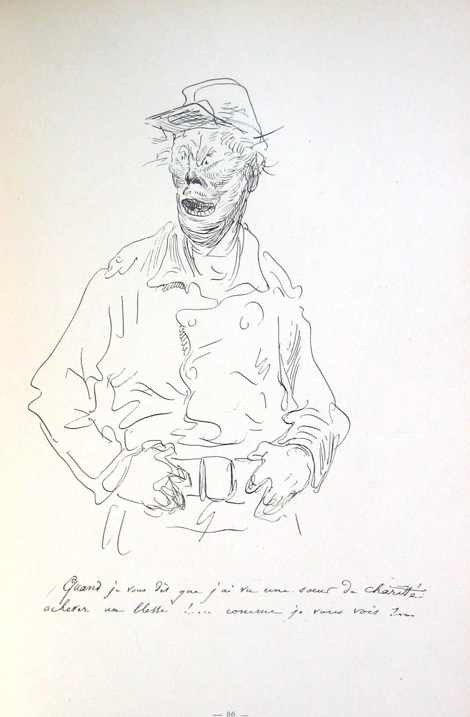 Quand je vous dis que j'ai vu une soeur de charité
achever un blessé !... comme je vous vois !...
— 86 —